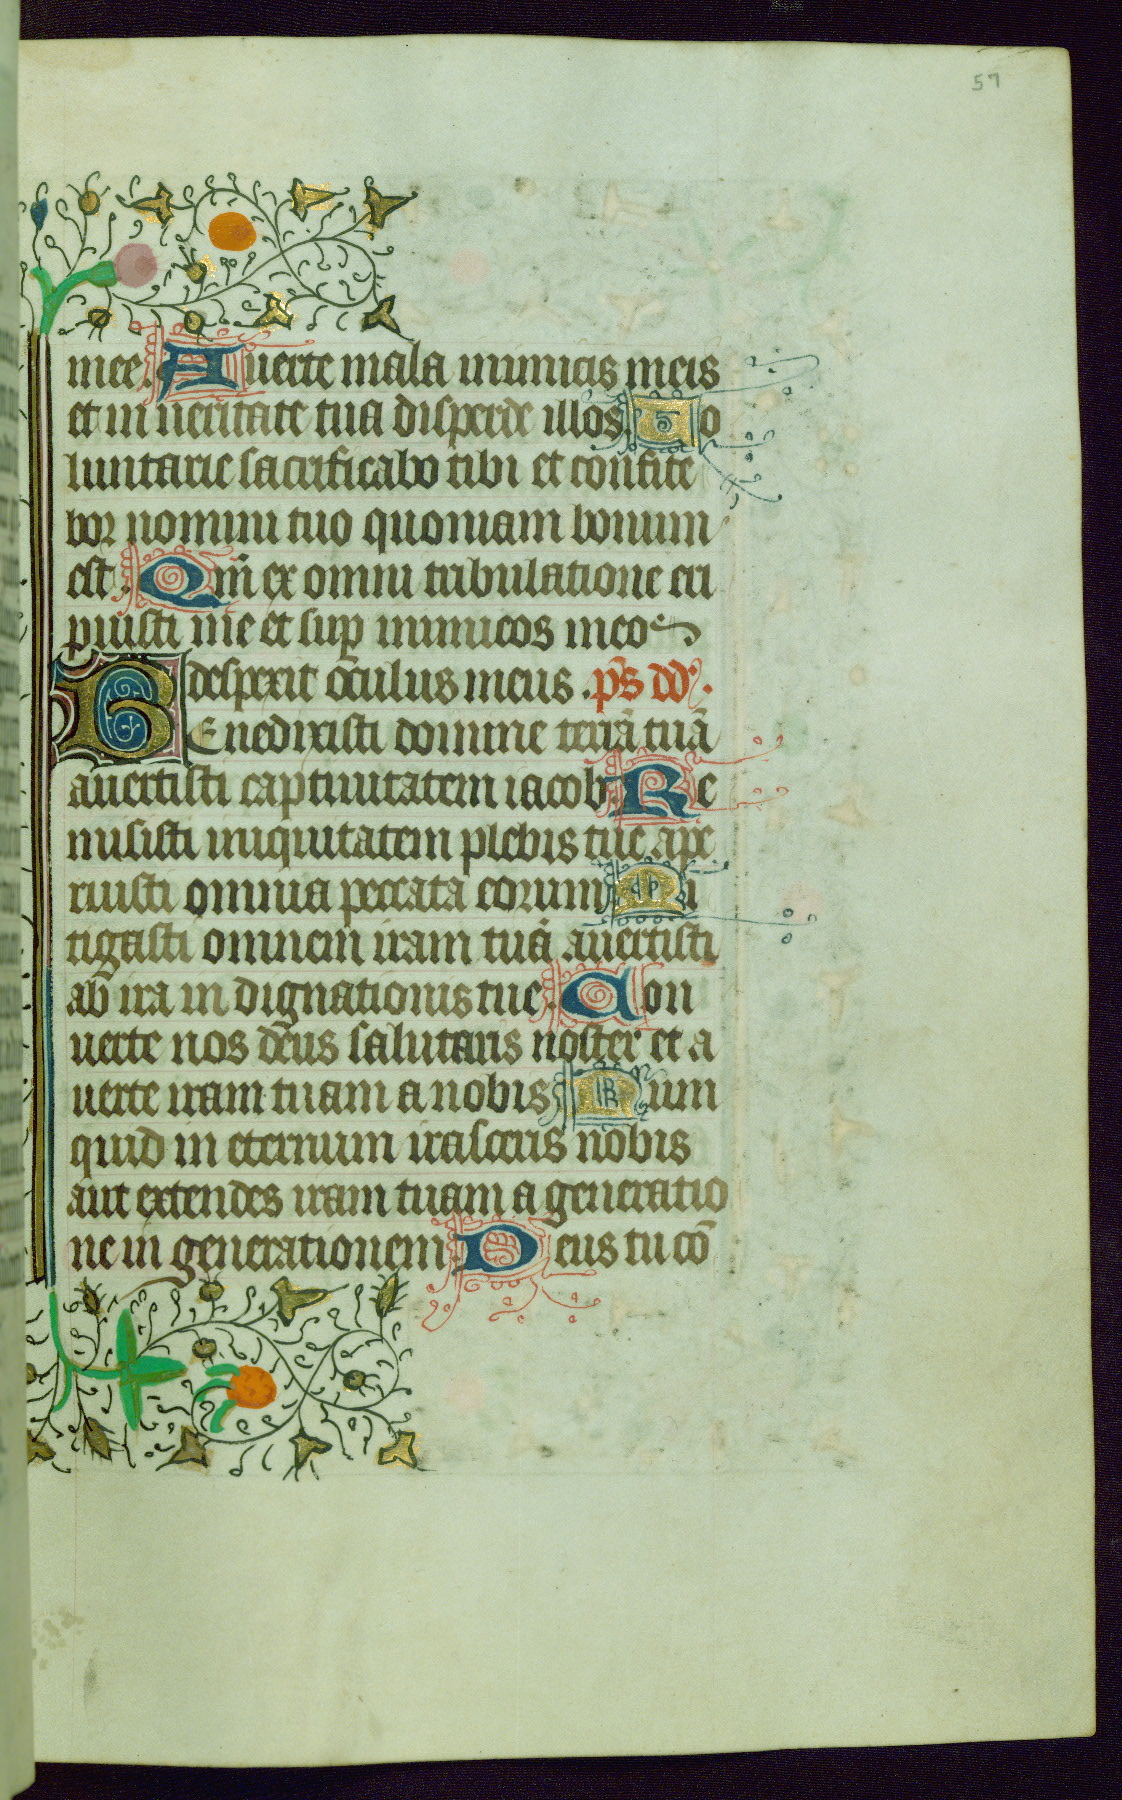 57
mee. Auerte mala inimicis meis
et in ueritate tua disperde illos. Uo
luntarie sacrificabo tibi et confite
bor nomini tuo quoniam bonum
est. Qm̄ ex omni tribulatione eri
puisti me et sup inimicos meos
despexit oculus meus. ps̄ dd̄.
Benedixisti domine terrā tuā
auertisti captiuitatem iacob. Re
misisti iniquitatem plebis tue ape
ruisti omnia peccata eorum. Mi
tigasti omnem iram tuā auertisti
ab ira in dignationis tue. Con
uerte nos deus salutaris noster et a
uerte iram tuam a nobis. Num
quid in eternum irasceris nobis
aut extendes iram tuam a generatio
ne in generationem. Deus tu cō